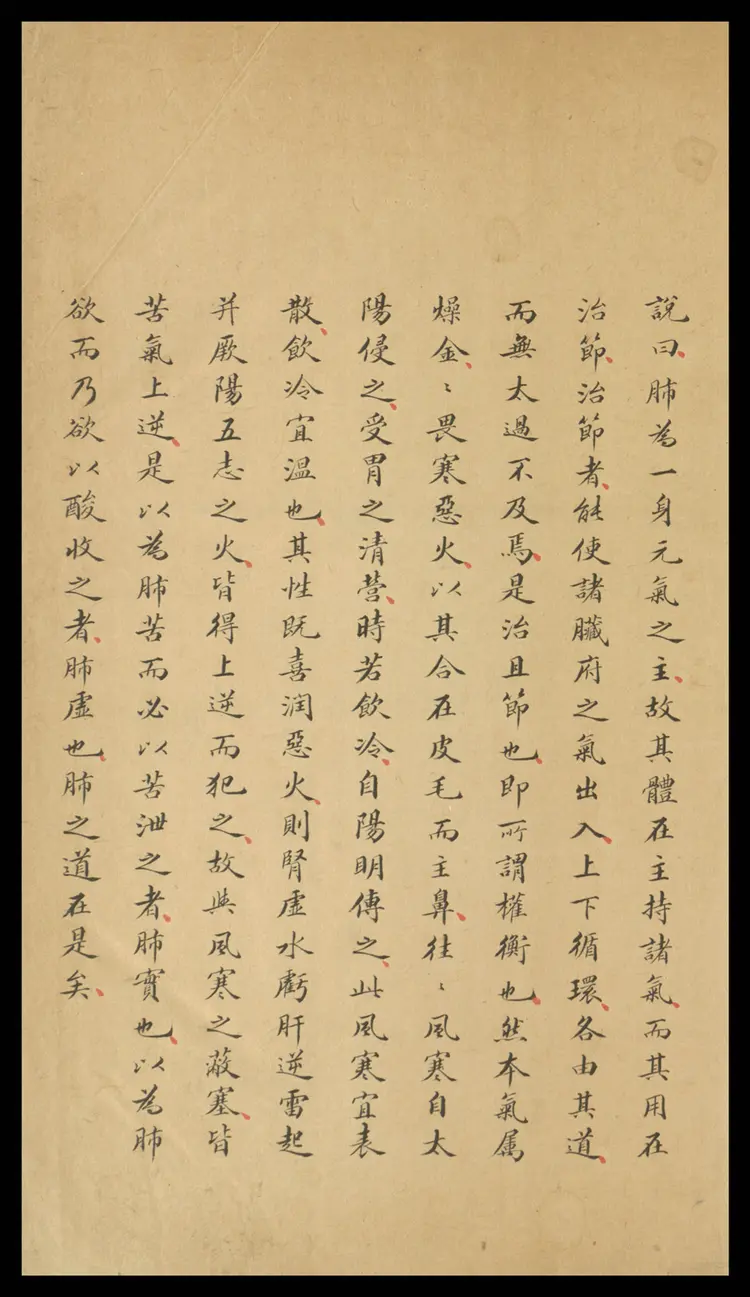 說曰肺為一身元氣之主故其體在主持諸氣而其用在
治節治節者能使諸臟府之氣出入上下循環各由其道
而無太過不及焉是治且節也即所謂權衡也然本氣属
燥金〻畏寒惡火以其合在皮毛而主鼻往〻風寒自太
陽侵之受胃之清營時若飲冷自陽明傳之此風寒宜表
散飲冷宜溫也其性既喜润惡火則腎虛水虧肝逆雷起
并厥陽五志之火皆得上逆而犯之故與風寒之蔽塞皆
苦氣上逆是以為肺苦而必以苦泄之者肺實也以為肺
欲而乃欲以酸收之者肺虛也肺之道在是矣